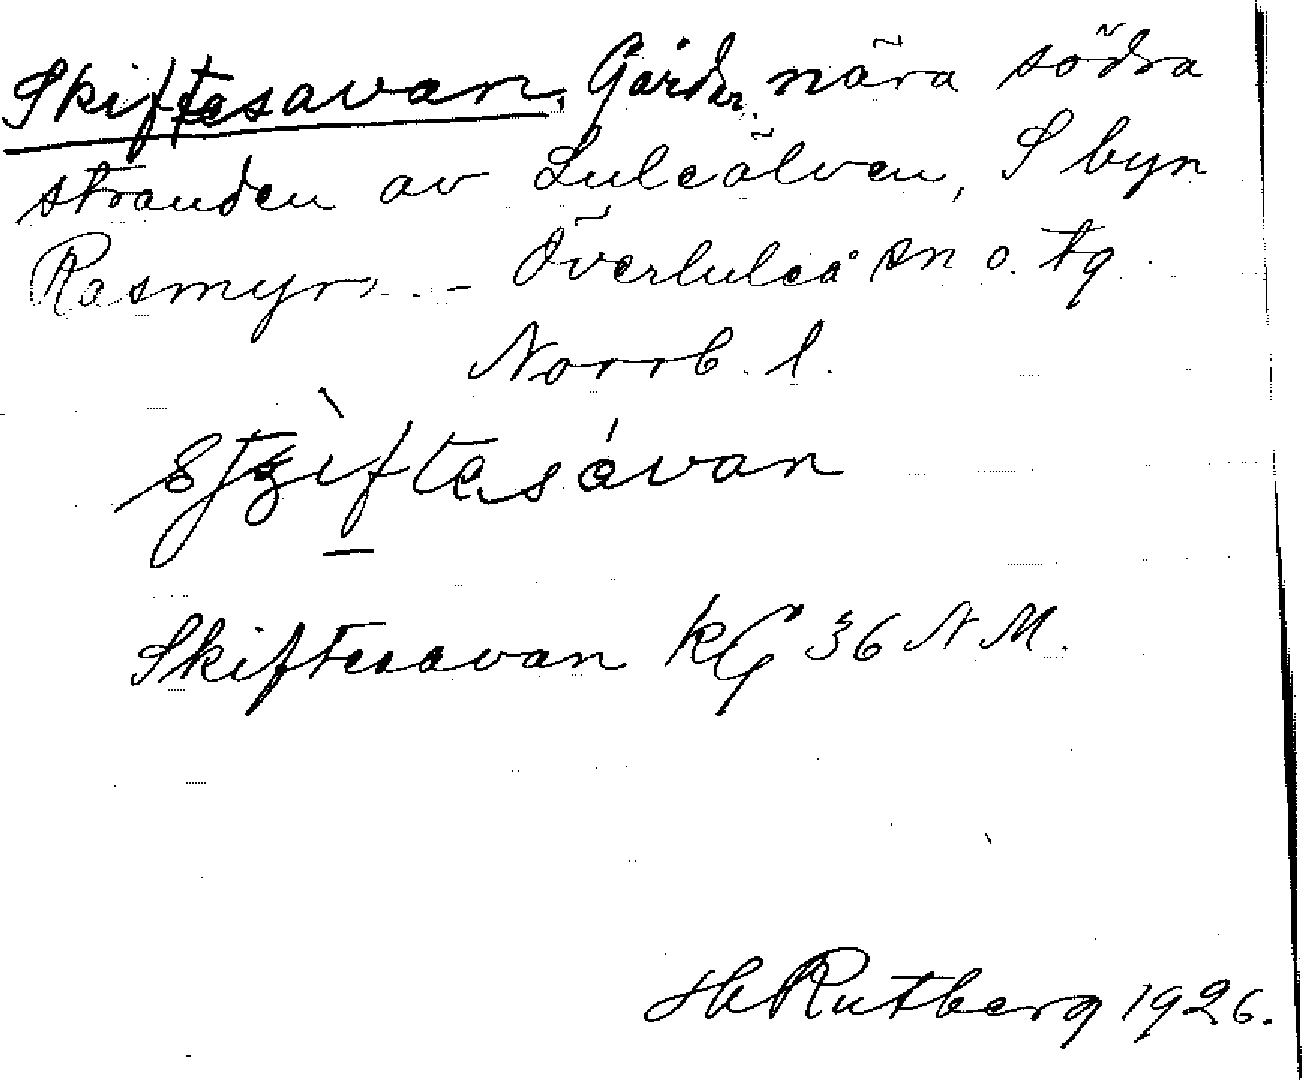 Skiftesavan. Gårdar nära södra
stranden av Luleälven, S byn
Rasmyra. - Överluleå sn o. tg
Norrb. l.
Skiftesavan KG 36 N M.
H Rutberg 1926.